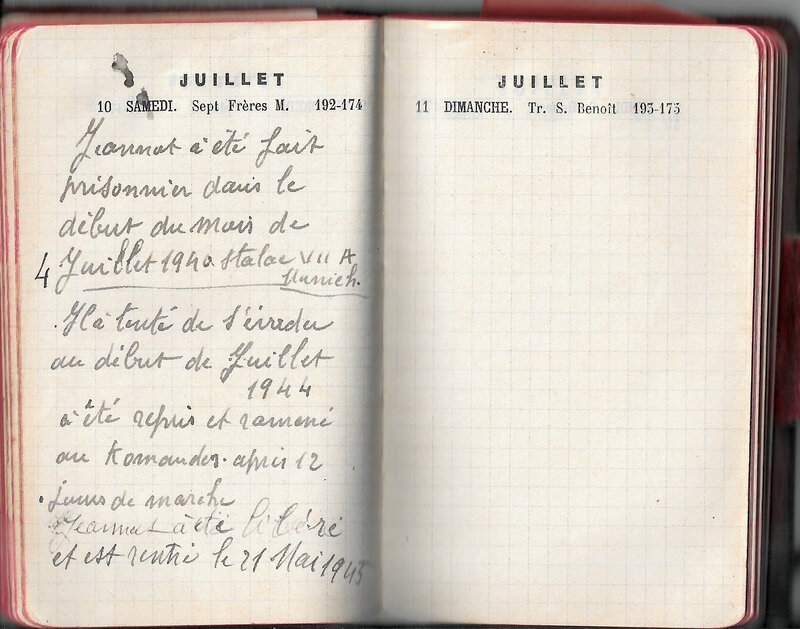 JUILLET
10 SAMEDI. Sept Frères M. 192-174
Jeannot à été fait
prisonnier dans le
début du mois de
4 Juillet 1940 stalac VII A
Munich.
Il à tenté de s'évader
au début de Juillet
1944
à été repris et ramené
au Komander après 12
jours de marche
Jeannot à été libéré
et est rentré le 21 Mai 1945
JUILLET
11 DIMANCHE. Tr. S. Benoît 193-173